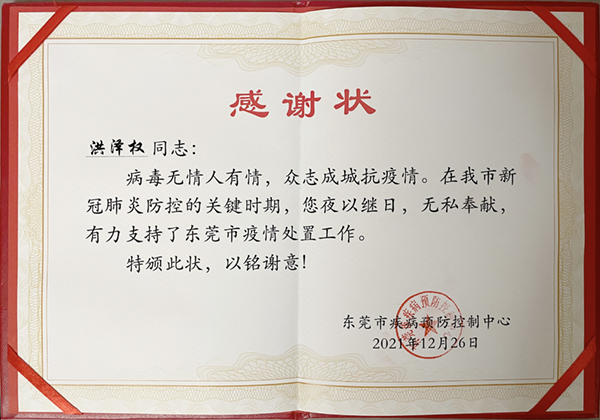 感谢状
洪泽权同志：
病毒无情人有情，众志成城抗疫情。在我市新
冠肺炎防控的关键时期，您夜以继日，无私奉献，
有力支持了东莞市疫情处置工作。
特颁此状，以铭谢意！
东莞市疾病预防控制中心
2021年12月26日